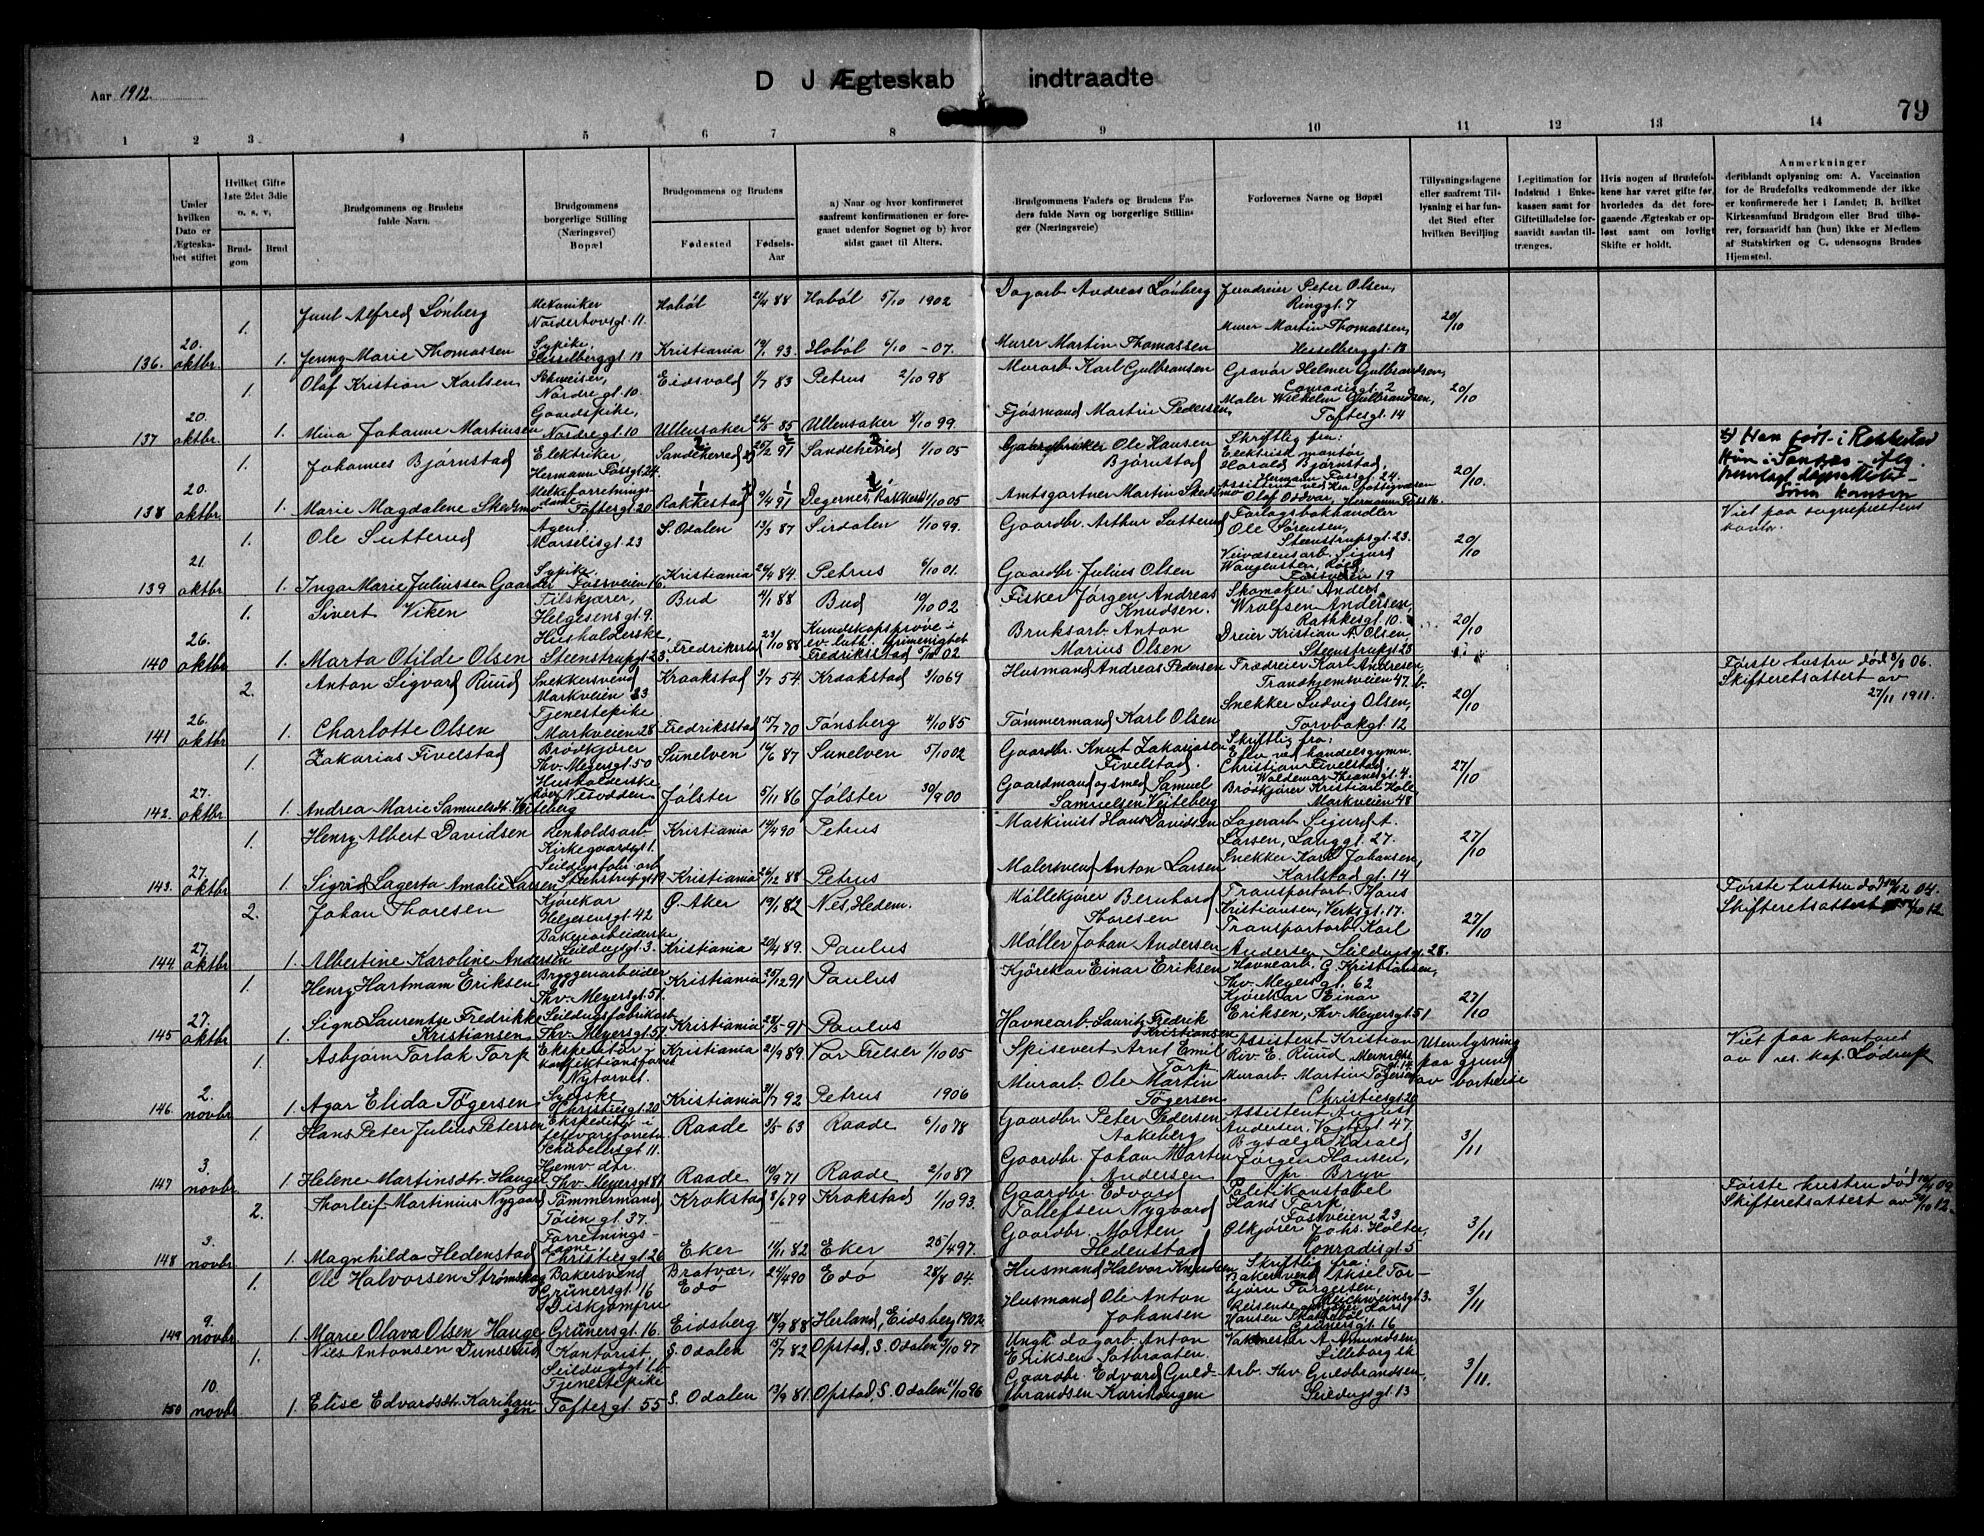 Aar 1912
D J Ægteskab indtraadte
79
1 2 3 4 5 6 7 8 9 10 11 12 13 14
Under hvilken Dato er Ægteskabet stiftet
Hvilket Gifte 1ste 2det 3die o. s. v,
Brudgom
Brud
Brudgommens og Brudens fulde Navn.
Brudgommens borgerlige Stilling (Næringsvei) Bopæl
Brudgommens og Brudens
Fødested
Fødsels-Aar
a) Naar og hvor konfirmeret saafremt konfirmationen er foregaaet udenfor Sognet og b) hvor sidst gaaet til Alters.
Brudgommens Faders og Brudens Faders fulde Navn og borgerlige Stillinger (Næringsveie)
Forlovernes Navne og Bopæl
Tillysningsdagene eller saafremt Tillysning ei har fundet Sted efter hvilken Bevilling
Legitimation for Indskud i Enkekassen samt for Giftetilladelse forsaavidt saadan tiltrænges.
Hvis nogen af Brudefolkene har været gifte før, hvorledes da det foregaaende Ægteskab er opløst samt om lovligt Skifte er holdt.
Anmerkninger deriblandt oplysning om: A. Vaccination for de Brudefolks vedkommende der ikke er konfirmerede her i Landet; B. hvilket Kirkesamfund Brudgom eller Brud tilhører, forsaavidt han (hun) ikke er Medlem af Statskirken og C. udensogns Brudes Hjemsted.
1. Juul Alfred Lønberg Mekaniker Norderhovsgt. 11. Hobøl 2/4 88 Hobøl 5/10 1902 Dagarb. Andreas Lønberg Jerndreier Peter Olsen, Ringgt. 7 20/10
136. 20. oktbr 1. Jenny Marie Thomassen Sypike, Hesselberggt. 13 Kristiania 19/1 93. Hobøl 6/10 - 07. Murer Martin Thomassen Murer Martin Thomassen, Hesselberggt. 13
1. Olaf Kristian Karlsen Schweiser, Nordre gt. 10. Eidsvold 1/7 83 Petrus 2/10 98 Murarb. Karl Gulbransen Gravør Helmer Gulbrandsen, Conradisgt. 2 20/10
137 20. oktbr 1. Mina Johanne Martinsen Gaardspike, Nordre gt. 10 Ullensaker 26/5 85 Ullensaker 8/10 99. Fjøsmand Martin Pedersen, Maler Wilhelm Gulbrandsen, Toftesgt. 14
1. Johannes Bjørnstad Elektriker, Hermann Fossgt. 24. Sandeherred 25/2 91 Sandeherred 1/10 05 Gaardbruker Ole Hansen Bjørnstad Skriftlig fra: Elektrisk montør Harald Bjørnstad, Hermann Fossgt. 24. 20/10. Han født i Rakkestad
138 20. oktbr 1. Marie Magdalene Skedsmo Melkeforretningsdame Toftesgt. 20 Rakkestad 9/4 91 Degernes, Rakkest. 1/10 05 Amtsgartner Martin Skedsmo Olaf Oddvar, Hermann Foss 16.
1. Ole Sutterud Agent, Marselisgt. 23 S. Odalen 13/3 87 Sirdalen 1/10 99. Gaardbr. Arthur Sutterud Forlagsbokhandler Ole Sørensen, Steenstrupsgt. 23. 20/10 Viet paa sogneprestens kontor.
139 21. oktbr 1. Inga Marie Juliussen Gaarder Sypike, Fossveien 16. Kristiania 26/4 84. Petrus 6/10 01. Gaardbr. Julius Olsen Veivæsensarb. Sigurd Fossveien 19
1. Sivert Viken Tilskjærer, Helgesensgt. 9. Bud 4/1 88 Bud 19/10 02 Fisker Jørgen Andreas Knudsen. Skomaker Anders Wrolfsen Andersen, Rathkesgt. 10. 20/10
140 26. oktbr 1. Marta Otilde Olsen Husholderske, Steenstrupgt. 23. Fredriksstad 23/10 88 Kundskapsprøve i ev. luth. frimenighet Fredriksstad 5/10 02 Bruksarb. Anton Marius Olsen Dreier Kristian A. Olsen, Steenstrupgt. 23
2. Anton Sigvard Ruud Snekkersvend Markveien 23 Kraakstad 3/7 54. Kraakstad 1/10 69 Husmand Andreas Pedersen Trædreier Karl Andresen, Trondhjemsveien 47. b. 20/10 Første hustru død 8/3 06. Skifteretsattest av 27/11 1911.
141 26. oktbr 1. Charlotte Olsen Tjenestepike Markveien 28 Fredriksstad 15/7 70 Tønsberg 4/10 85 Tømmermand Karl Olsen Snekker Ludvig Olsen, Torvbakgt. 12
1. Zakarias Fivelstad Brødkjører Thv. Meyersgt. 50 Sunelven 16/6 87 Sunelven 5/10 02 Gaardbr. Knut Zakariasen Fivelstad. Skriftlig fra: Elev ved handelsgymn. Christian Fivelstad, Waldemar Thranesgt. 4. 27/10
142. 27. oktbr 1. Andrea Marie Samuelsdt. Veiteberg Husholderske Nesodden Jølster 5/11 86 Jølster 30/9 00 Gaardmand og smed Samuel Samuelsen Veiteberg Brødkjører Kristian Hole, Markveien 48
1. Henry Albert Davidsen Renholdsarb. Kirkegaardsgt. 1. Kristiania 14/4 90 Petrus Maskinist Hans Davidsen Lagerarb. Sigurd A. Larsen, Langgt. 27. 27/10
143. 27. oktbr 1. Sigrid Lagerta Amalie Larsen Seildugsfabr. arb. Steenstrupgt. 19 Kristiania 26/12 88 Petrus Malersvend Anton Larsen Snekker Karl Johansen, Karlstadgt. 14
2. Johan Thoresen Kjørekar Helgesensgt. 42 Ø. Aker 19/1 82 Nes, Hedem. Møllekjører Bernhard Thoresen Transportarb. Hans Kristiansen, Verksgt. 17. 27/10 Første hustru død 04. Skifteretsattest 12.
144 27. oktbr 1. Albertine Karoline Andersen Bakeriarbeiderske Seildugsgt. 3. Kristiania 20/4 89. Paulus Møller Johan Andersen Transportarb. Karl Andersen, Seildugsgt. 28.
1. Henry Hartmann Eriksen Bryggeriarbeider Thv. Meyersgt. 51. Kristiania 25/12 91 Paulus Kjørekar Einar Eriksen Havnearb. C. Kristiansen, Thv. Meyersgt. 62 27/10
145 27. oktbr 1. Signe Laurentse Fredrikke Kristiansen Seildugsfabrikarb. Thv. Meyersgt. 51 Kristiania 28/5 91 Paulus Havnearb. Lauritz Fredrik Kristiansen Kjørekar Einar Eriksen, Thv. Meyersgt. 51
1. Asbjørn Torlak Torp Ekspeditør i konfektionsforr. Nytorvet. Kristiania 21/9 89. Vor Frelser 1/10 05 Spisevert Arnt Emil Torp Assistent Kristian Riv. E. Ruud Uten lysning paa grund av bortreise Viet paa kontoret av res. kap. Lødrup
146. 2. novbr 1. Agar Elida Tøgersen Syerske Christiesgt. 20 Kristiania 31/7 92 Petrus 1906 Murarb. Ole Martin Tøgersen Murarb. Martin Tøgersen Christiesgt. 20
1. Hans Peter Julius Petersen Ekspeditør i Schübelersgt. 11. Raade 3/5 63 Raade 6/10 78 Gaardbr. Peter Pedersen Aakeberg Assistent August Andersen, Vogtsgt. 47. 3/11
147 3. novbr 1. Helene Martinsdtr. Haugel Hjemv. dtr. Thv. Meyersgt. 81 Raade 10/9 71 Raade 2/10 87 Gaardbr. Johan Marten Andersen Bysælger Harald Jørgen Hansen, Bryn
2. Thorleif Martinius Nygaard Tømmermand, Tøien gt. 37. Krokstad 8/6 79 Krokstad 1/10 93. Gaardbr. Edvard Tollefsen Nygaard Politikonstabel Hans Torp, Fossveien 23 3/11 Første hustru død 09. Skifteretsattest av 30/10 12.
148 3. novbr 1. Magnhilda Hedenstad Forretningsdame, Christiesgt. 26 Eker 14/1 82 Eker 25/4 97. Gaardbr. Morten Hedenstad Ølkjører Johs. Holter, Conradisgt. 5
1. Ole Halvorsen Strømskag Bakersvend Grünersgt. 16 Bratvær, Edø 24/4 90 Edø 28/8 04. Husmand Halvor Knudsen Skriftlig fra: Bakersvend Aksel Torbjørn Torgersen, Reichweinsgt. 3. 3/11
149 9. novbr. 1. Marie Olava Olsen Hauge Diskjomfru Grünersgt. 16. Eidsberg 18/9 88 Herland, Eidsberg 1902 Husmand Ole Anton Johansen Reisende Lars Hansen Grünersgt. 16
1. Nils Antonsen Dunserud Kontorist, Seildugsgt. S. Odalen 15/7 82 Opstad, S. Odalen 3/10 97 Ungk. dagarb. Anton Eriksen Sotbraaten. Vakmester A. Amundsen, Lilleborg sk. 3/11.
150 10. novbr 1. Elise Edvardsdt. Karihaugen Tjenestepike Toftesgt. 55 S. Odalen 13/9 81. Opstad, S. Odalen 11/10 96 Gaardbr. Edvard Guldbrandsen Karihaugen Arb. Thv. Guldbrandsen, Seildugsgt. 13